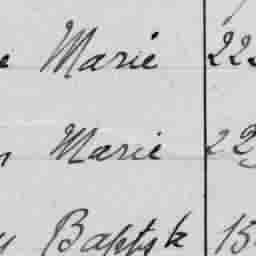 Marie 22
Marie 22
Baptist 15